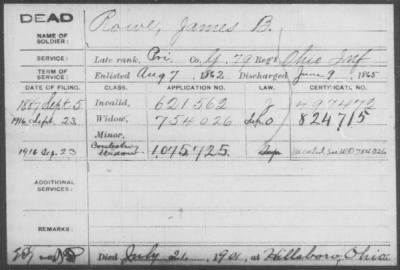 DEAD
NAME OF SOLDIER: Rowe, James B.
SERVICE: Late rank, Pri. Co. G, 79 Reg't Ohio Inf
TERM OF SERVICE: Enlisted Aug 7, 1862 Discharged June 9, 1865
DATE OF FILING. CLASS. APPLICATION NO. LAW. CERTIFICATE NO.
1887 Sept 5 Invalid, 621562 497472
1916 Sept. 23 Widow, 754026 824715
Minor,
1916 Sep. 23 Contesting Widow 1075725
ADDITIONAL SERVICES:
REMARKS:
Died July 21, 1901, at Hillsboro, Ohio